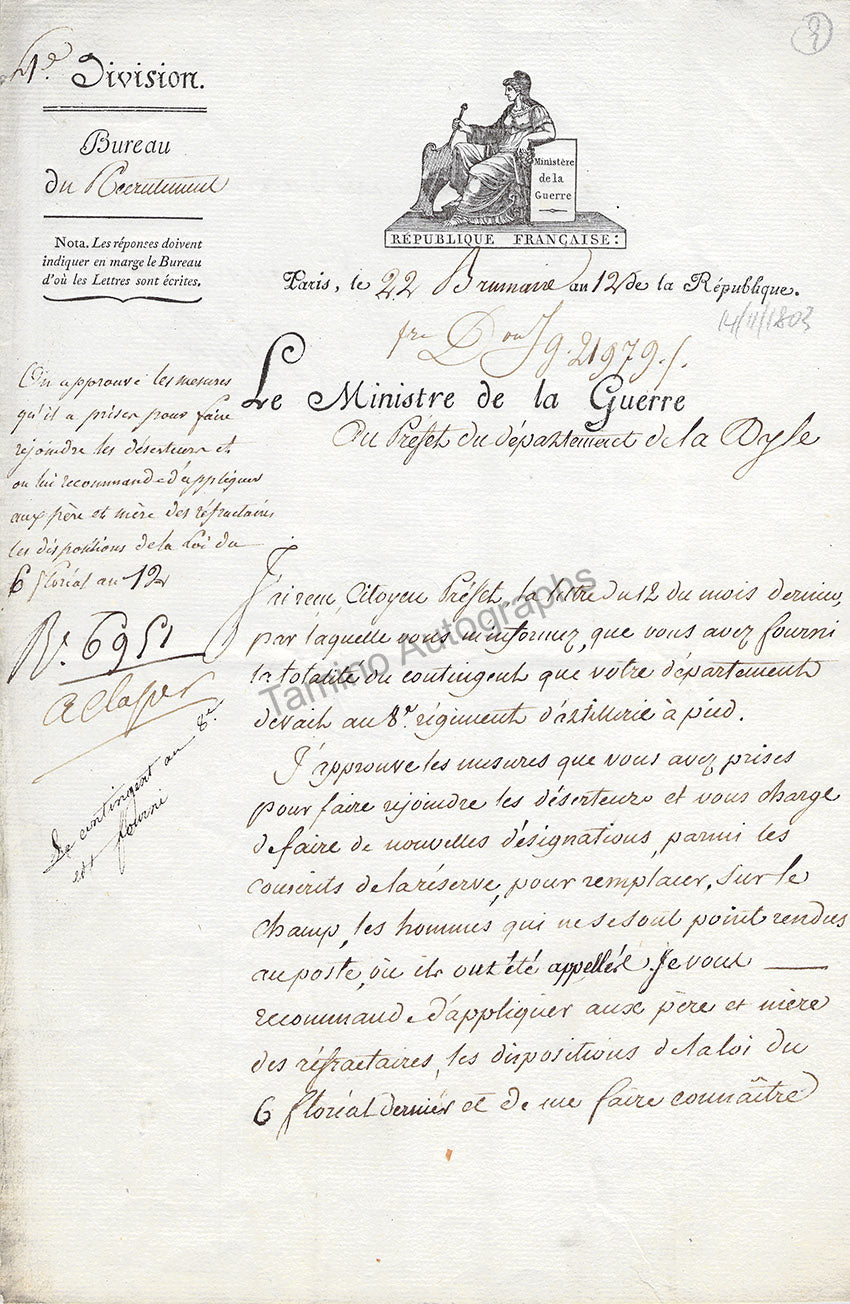 1re Division.
Bureau
du Recrutement
Nota. Les réponses doivent
indiquer en marge le Bureau
d'où les Lettres sont écrites.
3
Ministère
de la
Guerre
RÉPUBLIQUE FRANÇAISE:
Paris, le 22 Brumaire an 12 de la République.
14/11/1803
21979
Le Ministre de la Guerre
Au Préfet du département de la Dyle
On approuve les mesures
qu'il a prises pour faire
rejoindre les déserteurs et
on lui recommande d'appliquer
aux père et mère des réfractaires
les dispositions de la Loi du
6 floréal an 12
6951
A classer
Le contingent au 8e
est fourni
J'ai reçu, Citoyen Préfet, la lettre du 12 du mois dernier,
par laquelle vous m'informez, que vous avez fourni
la totalité du contingent que votre département
devait au 8e. régiment d'artillerie à pied.
J'approuve les mesures que vous avez prises
pour faire rejoindre les déserteurs et vous charge
de faire de nouvelles désignations, parmi les
conscrits de la réserve, pour remplacer, sur le
champ, les hommes qui ne se sont point rendus
au poste, où ils ont été appellés. Je vous
recommande d'appliquer aux père et mère
des réfractaires, les dispositions de la loi du
6 floréal dernier et de me faire connaître
Tamino Autographs